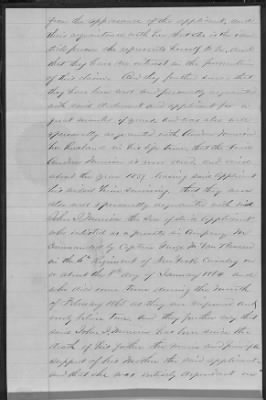 from the appearance of the applicant, and
their acquaintance with her that she is the identical
person she represents herself to be, and
that they have no interest in the prosecution
of this claim. And they further swear that
they have been and are personally acquainted
with said applicant for a
great number of years and was also well
personally acquainted with Andrew
her husband in his life time, that the said
Andrew is now dead and died
about the year 1859 leaving said applicant
his widow him surviving. That they were
also well & personally acquainted with said
John J. the son of said applicant
who enlisted as a private in Company M
Commanded by Captain George M. Van
in the 6th Regiment of New York Cavalry on
or about the day of January 1864 and
who died some time during the month
of February 1865 as they are informed and
verily believe true, and they further say that
said John J. has been since the
death of his father the means of
support of his Mother the said applicant
and that she was entirely dependent on